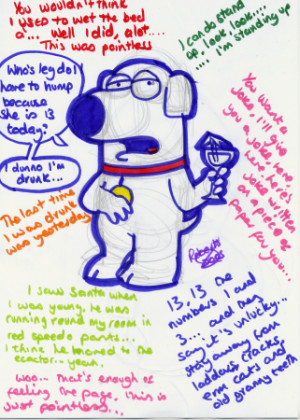 You wouldn't think
I used to wet the bed
a'... Well I did, alot....
This was pointless
I can do stand
up, look, look....
.... I'm standing up
Who's leg do I
have to hump
because
she is 13
today?
I dunno I'm
drunk...
You want a
joke, I'll give
you a joke, here
here's a
joke written
on a piece of
paper for you...
The last time
I was drunk
was yesterday
I saw Santa when
I was young, he was
running round my room in
red speedo pants....
I think he belonged to the
... yeah.
13, 13 the
numbers 1 and
3... and may
say it's unlucky...
stay away from
ladders, cracks
erm cats and
old granny teeth
woo... That's enough of
feeling the page, this is
just pointless...